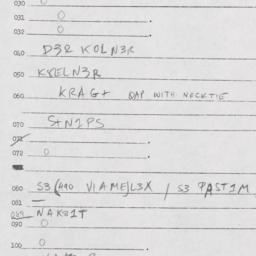 030 O
031 O
032 O
040 D3R KOLN3R
050
060 KRAG+ GAP WITH NECKTIE
070 S+N1PS
071
072 O
080 S3(490 VIAMEJL3X / S3 PAST1M
081 —
NAK81T
090 O
100 O